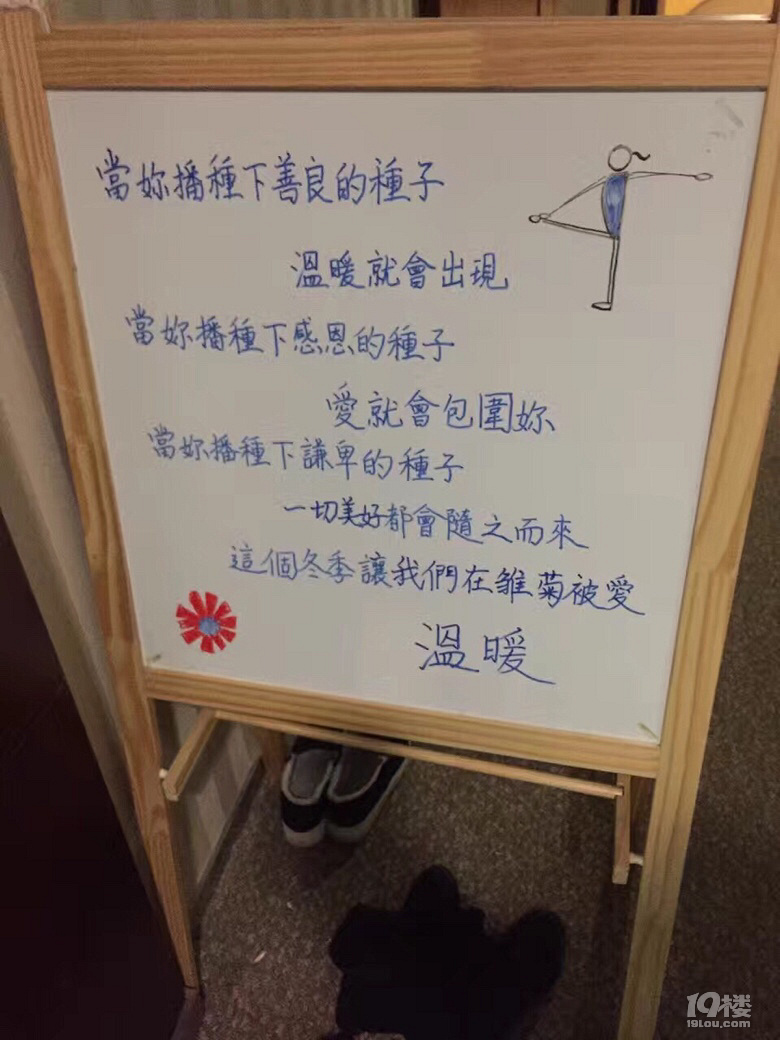 當妳播種下善良的種子
溫暖就會出現
當妳播種下感恩的種子
愛就會包圍妳
當妳播種下謙卑的種子
一切美好都會隨之而來
這個冬季讓我們在雏菊被愛
溫暖
19楼
19lou.com